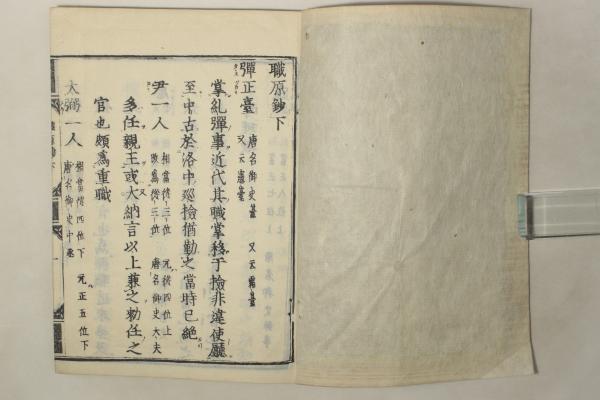 職原鈔下
彈正臺 唐名御史臺 又云霜臺
又云憲臺
掌糺彈事近代其職掌移于撿非違使廳
至中古於洛中巡撿猶勤之當時已絶
尹一人 相當從三位 元從四位上
改爲從三位 唐名御史大夫
多任親王或大納言以上兼之勅任之
官也頗爲重職
大弼一人 相當從四位下 元正五位下
唐名御史中丞